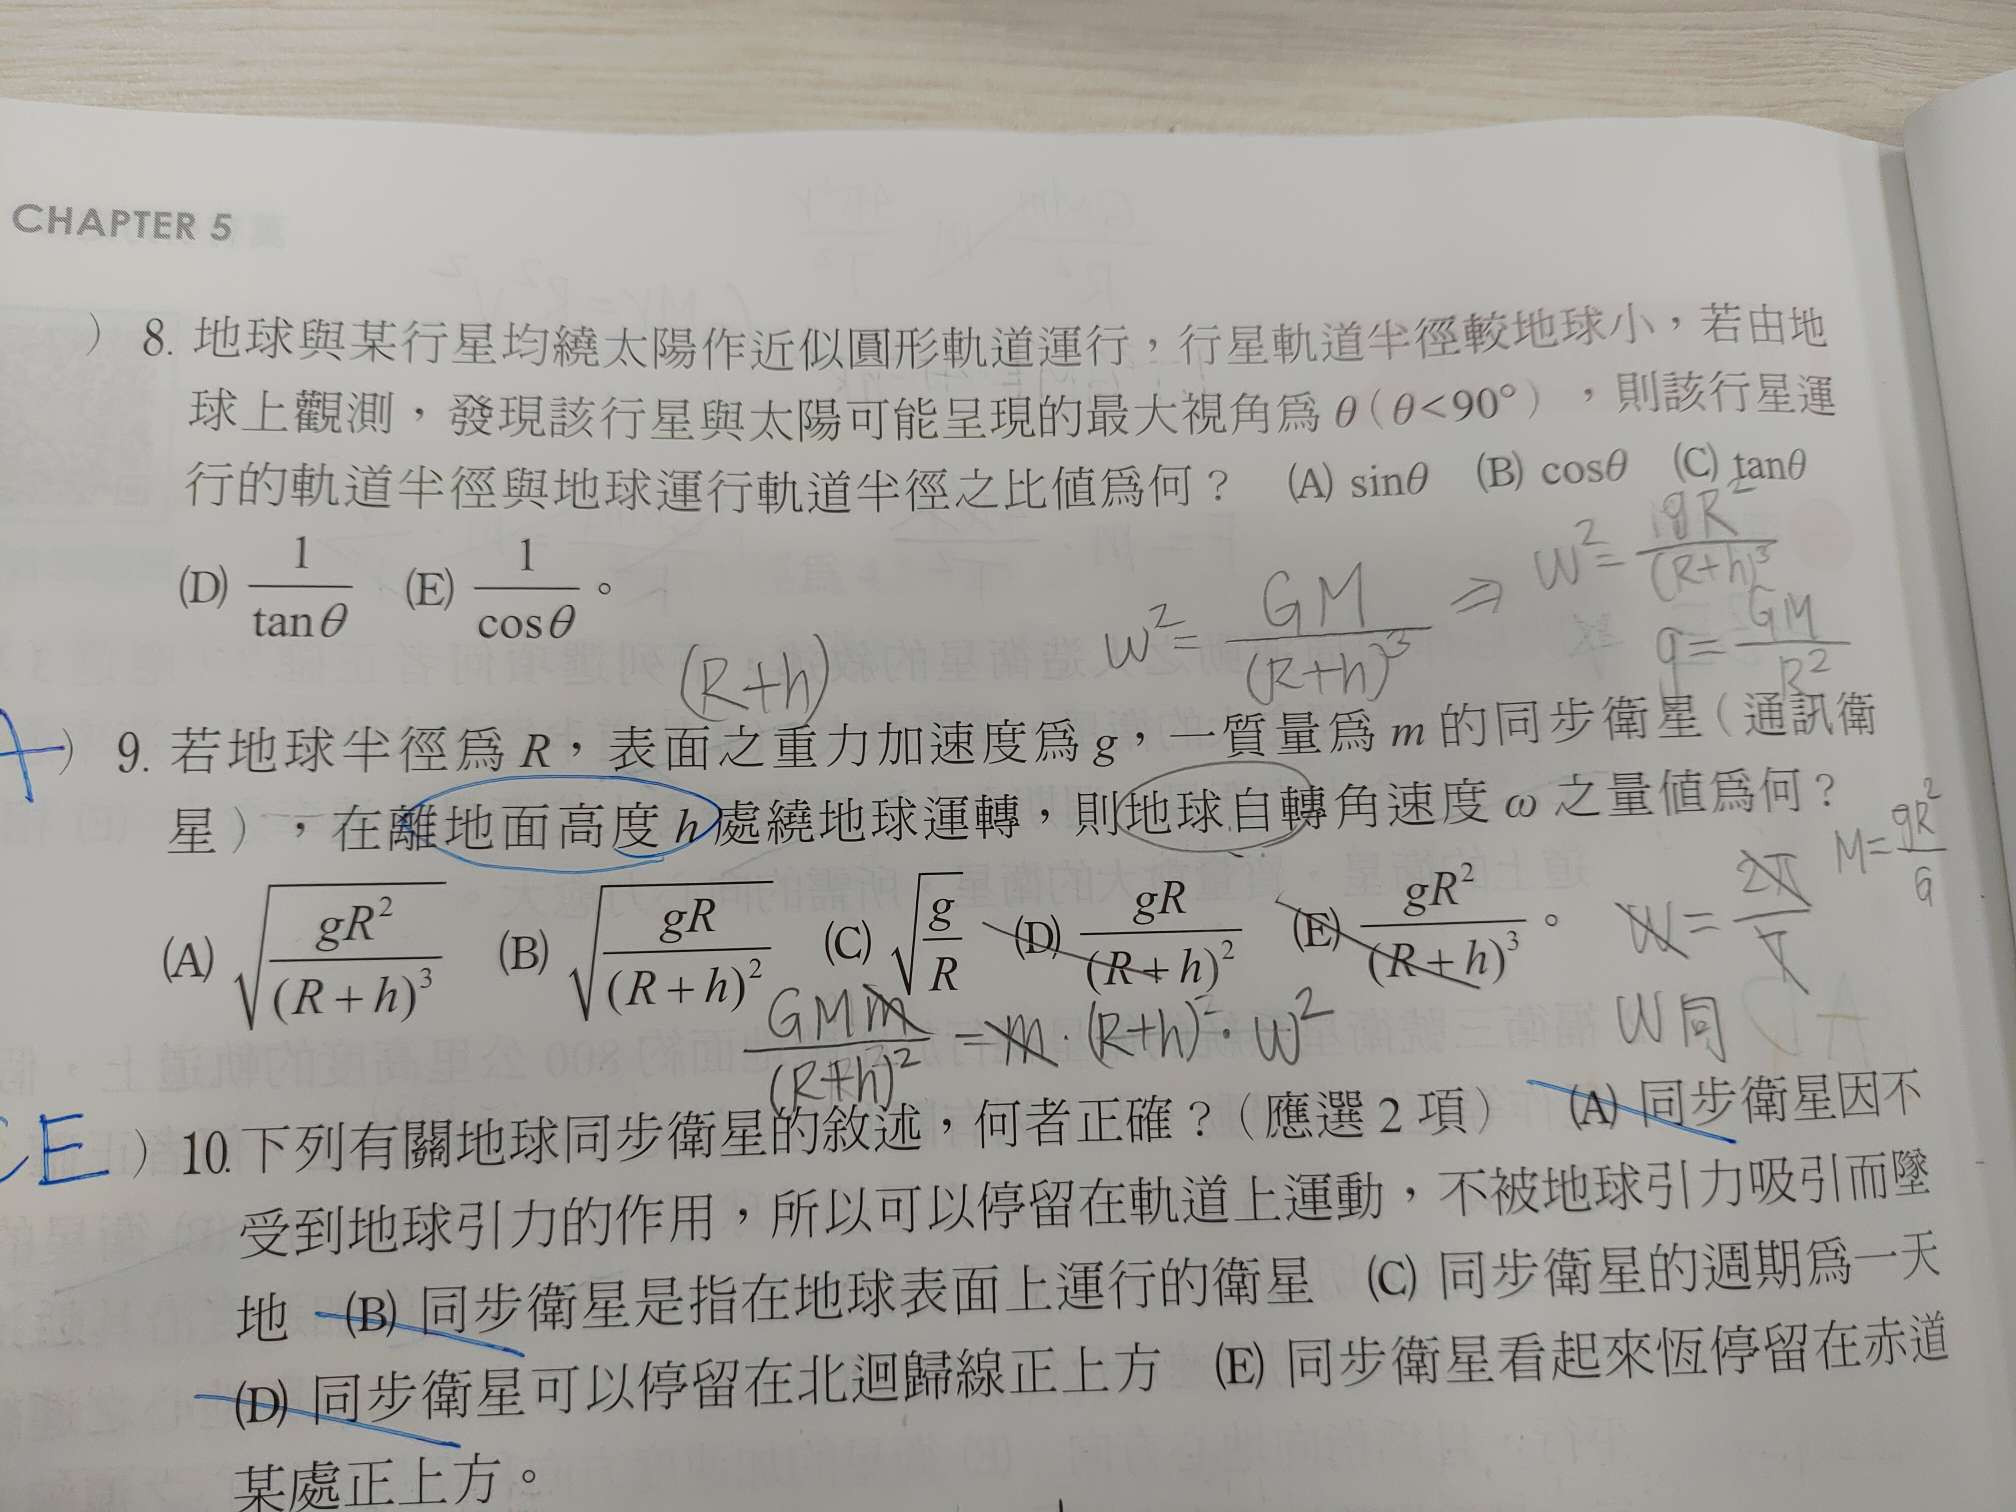 CHAPTER 5
) 8. 地球與某行星均繞太陽作近似圓形軌道運行，行星軌道半徑較地球小，若由地
球上觀測，發現該行星與太陽可能呈現的最大視角為 θ（θ<90°），則該行星運
行的軌道半徑與地球運行軌道半徑之比值為何？ (A) sinθ (B) cosθ (C) tanθ
(D) 1/tanθ (E) 1/cosθ 。
w²= GM/(R+h)³ ⇒ w²= gR²/(R+h)³
g= GM/R²
(R+h)
A ) 9. 若地球半徑為 R，表面之重力加速度為 g，一質量為 m 的同步衛星（通訊衛
星），在離地面高度 h 處繞地球運轉，則地球自轉角速度 ω 之量值為何？
M= gR²/G
(A) √(gR²/(R+h)³) (B) √(gR/(R+h)²) (C) √(g/R) (D) gR/(R+h)² (E) gR²/(R+h)³ 。
W= 2π/T
GMm/(R+h)² = m·(R+h)·w²
W同
CE ) 10. 下列有關地球同步衛星的敘述，何者正確？（應選 2 項） (A) 同步衛星因不
受到地球引力的作用，所以可以停留在軌道上運動，不被地球引力吸引而墜
地 (B) 同步衛星是指在地球表面上運行的衛星 (C) 同步衛星的週期為一天
(D) 同步衛星可以停留在北迴歸線正上方 (E) 同步衛星看起來恆停留在赤道
某處正上方。